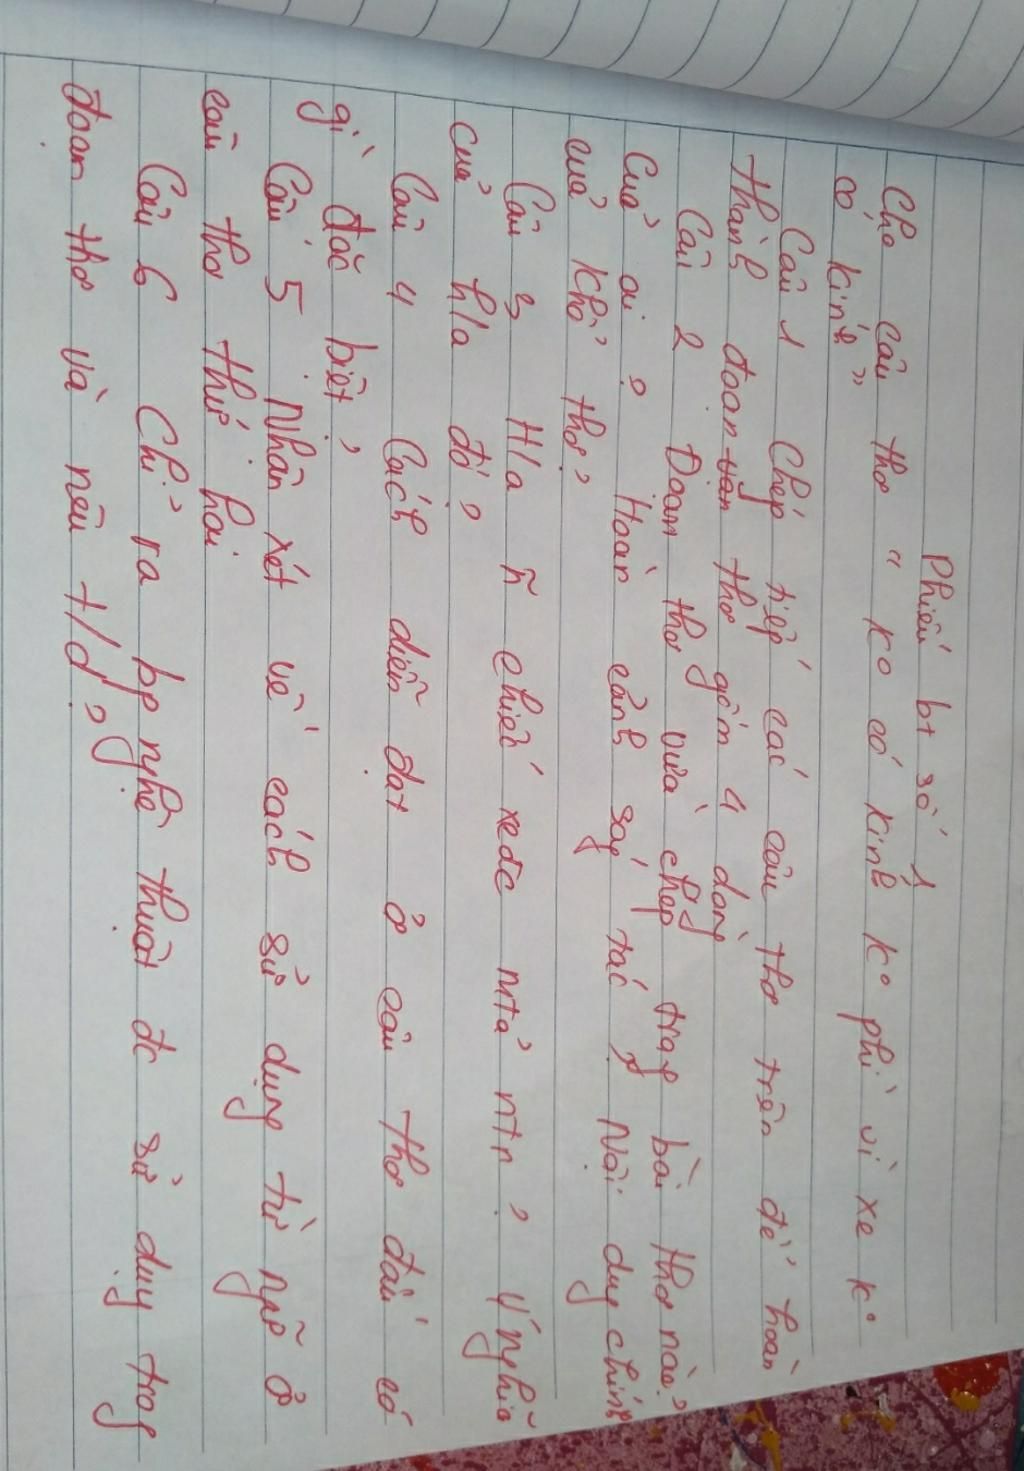 Phiếu bt số 1
Cho câu thơ " ko có kính ko phải vì xe ko
có kính"
Câu 1 Chép tiếp các câu thơ trên để hoàn
thành đoạn thơ gồm 4 dòng
Câu 2 Đoạn thơ vừa chép trog bài thơ nào?
Của ai? Hoàn cảnh ság tác? Nội dug chính
của khổ thơ?
Câu 3 H/a ~ chiếc xe đc mtả ntn? Ý nghĩa
của h/a đó?
Câu 4 Cách diễn đạt ở câu thơ đầu có
gì đặc biệt?
Câu 5 Nhận xét về cách sử dụng từ ngữ ở
câu thơ thứ hai
Câu 6 Chỉ ra bp nghệ thuật đc sử dụg trog
đoạn thơ và nêu t/d?